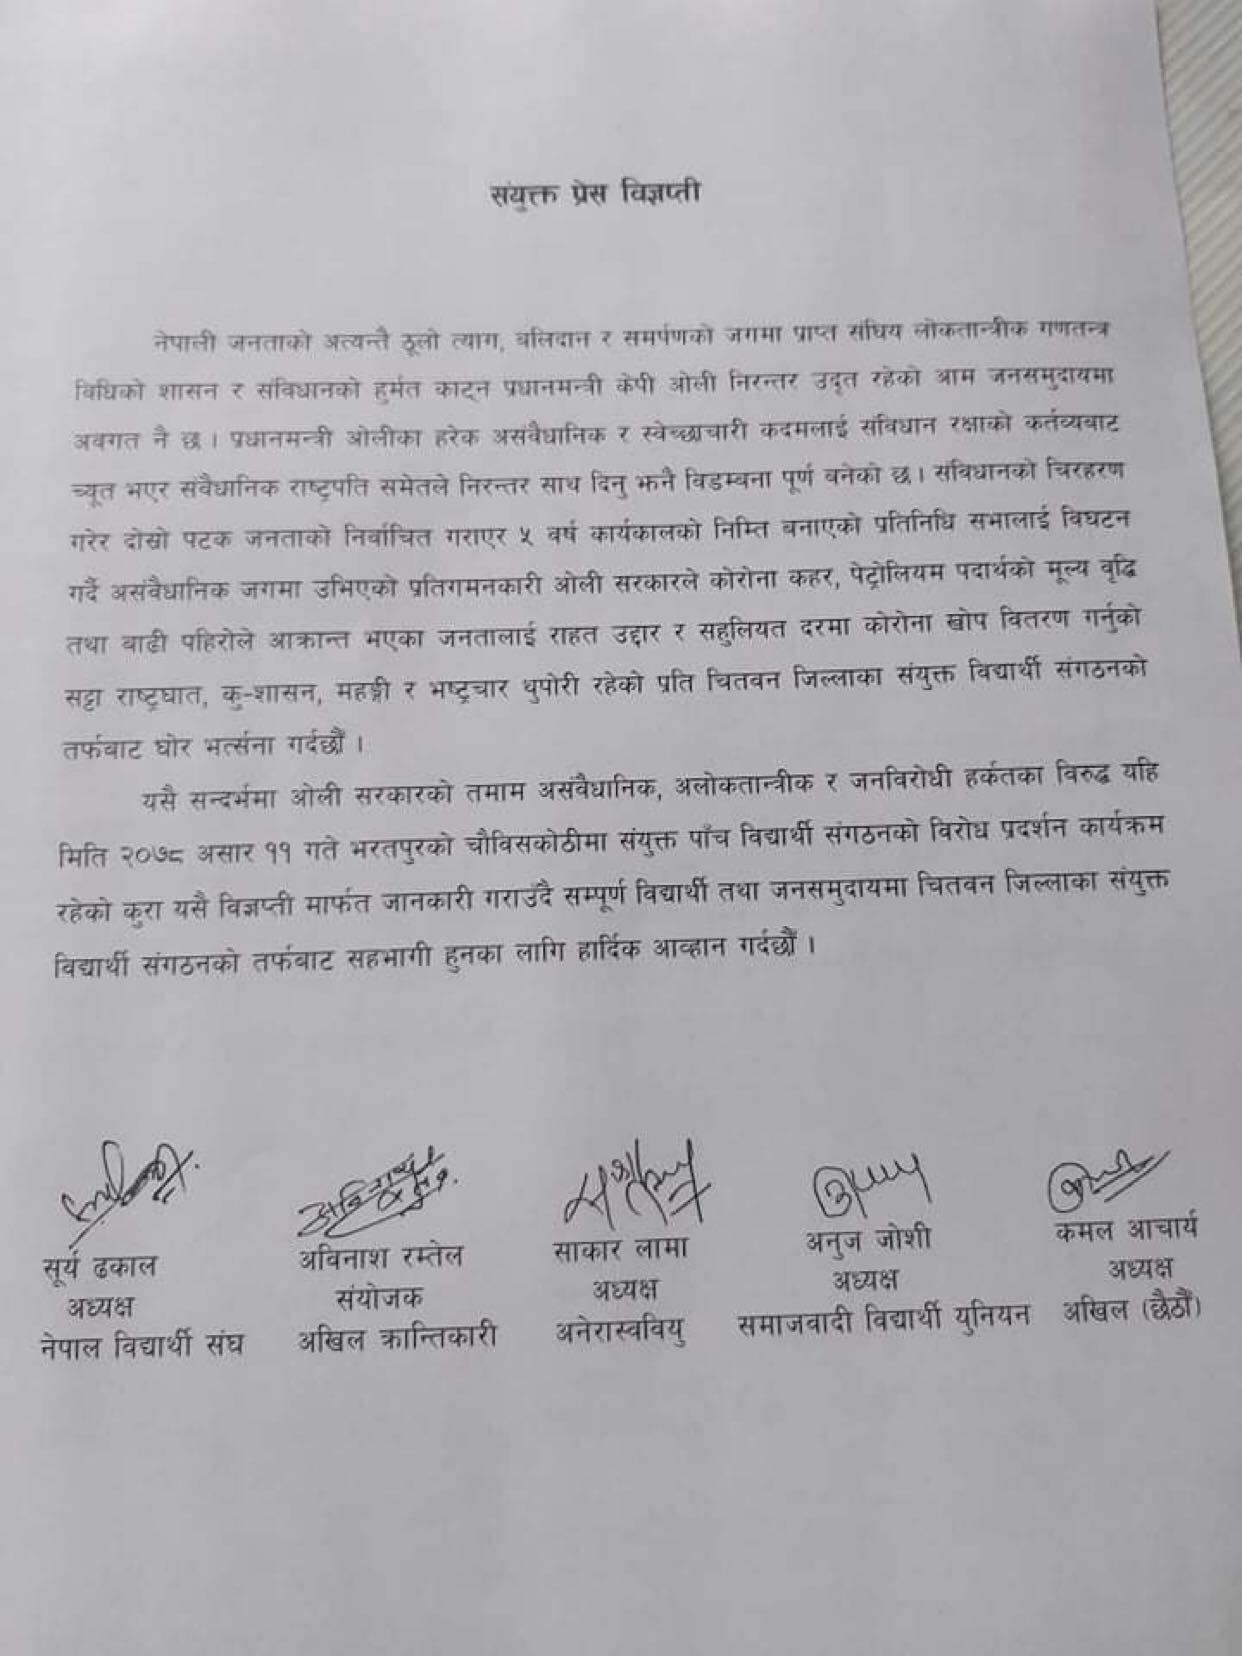 संयुक्त प्रेस विज्ञप्ती
नेपाली जनताको अत्यन्तै ठूलो त्याग, बलिदान र समर्पणको जगमा प्राप्त संघिय लोकतान्त्रीक गणतन्त्र
विधिको शासन र संविधानको हुर्मत काट्न प्रधानमन्त्री केपी ओली निरन्तर उदृत रहेको आम जनसमुदायमा
अवगत नै छ । प्रधानमन्त्री ओलीका हरेक असंवैधानिक र स्वेच्छाचारी कदमलाई संविधान रक्षाको कर्तव्यबाट
च्यूत भएर संवैधानिक राष्ट्रपति समेतले निरन्तर साथ दिनु झनै विडम्बना पूर्ण बनेको छ । संविधानको चिरहरण
गरेर दोस्रो पटक जनताको निर्वाचित गराएर ५ वर्ष कार्यकालको निम्ति बनाएको प्रतिनिधि सभालाई विघटन
गर्दै असंवैधानिक जगमा उभिएको प्रतिगमनकारी ओली सरकारले कोरोना कहर, पेट्रोलियम पदार्थको मूल्य वृद्धि
तथा बाढी पहिरोले आक्रान्त भएका जनतालाई राहत उद्दार र सहुलियत दरमा कोरोना खोप वितरण गर्नुको
सट्टा राष्ट्रघात, कु-शासन, महङ्गी र भष्ट्रचार थुपोरी रहेको प्रति चितवन जिल्लाका संयुक्त विद्यार्थी संगठनको
तर्फबाट घोर भर्त्सना गर्दछौं ।
यसै सन्दर्भमा ओली सरकारको तमाम असंवैधानिक, अलोकतान्त्रीक र जनविरोधी हर्कतका विरुद्ध यहि
मिति २०७८ असार ११ गते भरतपुरको चौविसकोठीमा संयुक्त पाँच विद्यार्थी संगठनको विरोध प्रदर्शन कार्यक्रम
रहेको कुरा यसै विज्ञप्ती मार्फत जानकारी गराउँदै सम्पूर्ण विद्यार्थी तथा जनसमुदायमा चितवन जिल्लाका संयुक्त
विद्यार्थी संगठनको तर्फबाट सहभागी हुनका लागि हार्दिक आव्हान गर्दछौं ।
सूर्य ढकाल
अध्यक्ष
नेपाल विद्यार्थी संघ
अविनाश रम्तेल
संयोजक
अखिल क्रान्तिकारी
साकार लामा
अध्यक्ष
अनेरास्ववियु
अनुज जोशी
अध्यक्ष
समाजवादी विद्यार्थी युनियन
कमल आचार्य
अध्यक्ष
अखिल (छैठौं)